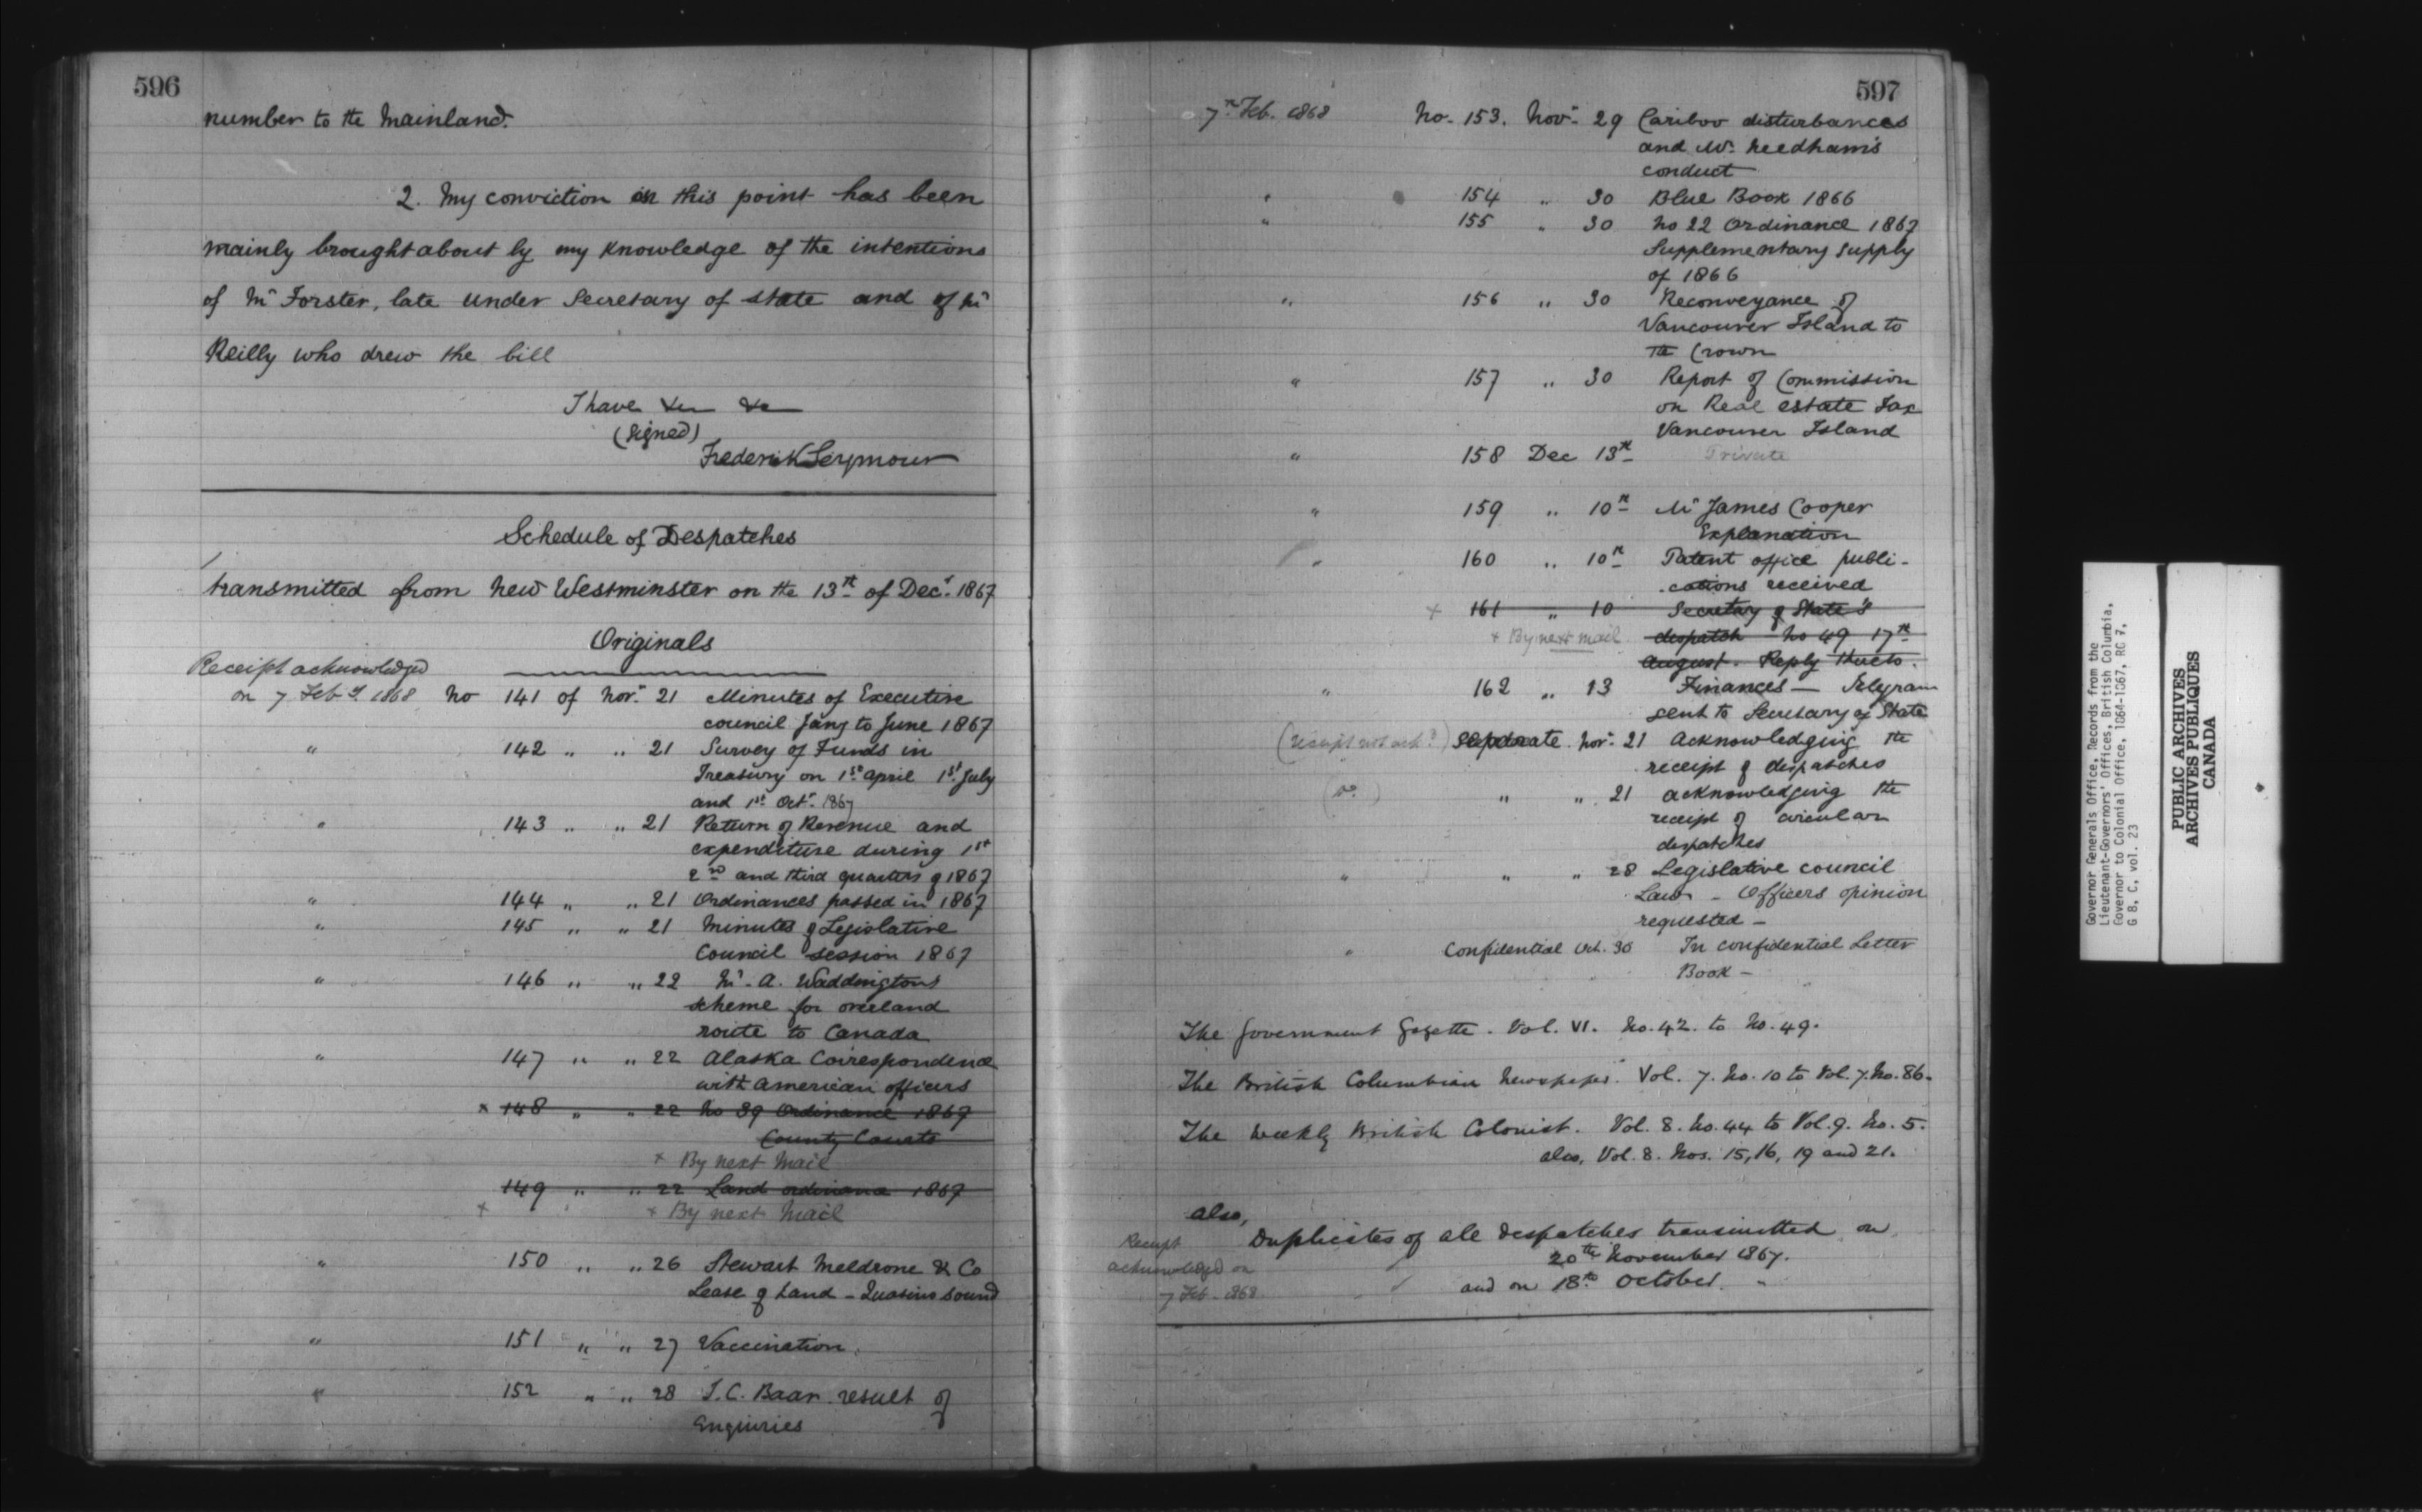 596
number to the Mainland.
2. My conviction on this point has been
mainly brought about by my knowledge of the intentions
of Mr Forster, late under Secretary of State and of Mr
Reilly who drew the bill
I have &c &c
(Signed)
Frederick Seymour
Schedule of Despatches
transmitted from New Westminster on the 13th of Decr. 1867
Originals
Receipt acknowledged
on 7 Feby 1868 No 141 of Novr. 21 Minutes of Executive
council Jany to June 1867
" 142 " " 21 Survey of Funds in
Treasury on 1st April 1st July
and 1st Octr. 1867
" 143 " " 21 Return of Revenue and
expenditure during 1st
2nd and third quarters of 1867
" 144 " " 21 Ordinances passed in 1867
" 145 " " 21 Minutes of Legislative
Council session 1867
" 146 " " 22 Mr. A. Waddingtons
scheme for overland
route to Canada
" 147 " " 22 Alaska Correspondence
with American officers
x 148 " " 22 No 39 Ordinance 1867
County Courts
x By next Mail
149 " " 22 Land ordinance 1867
x x By next Mail
" 150 " " 26 Stewart Meldrone & Co
Lease of Land - Quasino Sound
" 151 " " 27 Vaccination.
" 152 " " 28 J. C. Baar result of
Enquiries
597
7th Feb. 1868 No. 153. Novr. 29 Cariboo disturbances
and Mr. Needham's
conduct
" 154 " 30 Blue Book 1866
" 155 " 30 No 22 Ordinance 1867
Supplementary Supply
of 1866
" 156 " 30 Reconveyance of
Vancouver Island to
the Crown
" 157 " 30 Report of Commission
on Real estate Tax
Vancouver Island
" 158 Dec 13th Private
" 159 " 10th Mr James Cooper
Explanation
" 160 " 10th Patent office publi-
cations received
x 161 " 10 Secretary of State's
x By next mail despatch No 49 17th
August. Reply thereto.
" 162 " 13 Finances - Telegram
sent to Secretary of State
(receipt not ackd.) Separate Novr. 21 Acknowledging the
receipt of despatches
(Do.) " " 21 acknowledging the
receipt of circular
despatches
" " " 28 Legislative council
Law - Officers opinion
requested -
" Confidential Oct. 30 In confidential Letter
Book -
The Government Gazette. Vol. VI. No. 42. to No. 49.
The British Columbian Newspaper. Vol. 7. No. 10 to Vol. 7. No. 86.
The Weekly British Colonist. Vol. 8. No. 44 to Vol. 9. No. 5.
also, Vol. 8. Nos. 15, 16, 19 and 21.
also,
Duplicates of all despatches transmitted on
20th November 1867.
and on 18th October. "
Receipt
acknowledged on
7 Feb. 1868
Governor Generals Office, Records from the
Lieutenant-Governors' Offices, British Columbia,
Governor to Colonial Office, 1864-1867, RG 7,
G 8, C, vol. 23
PUBLIC ARCHIVES
ARCHIVES PUBLIQUES
CANADA